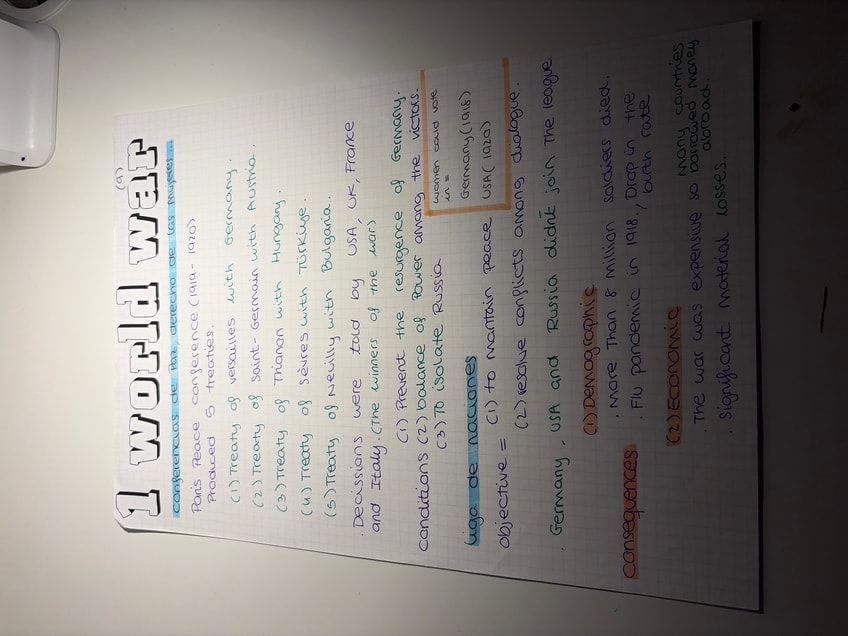 (9)
1 world war
conferencias de Paz, derecho de las mujeres..
Paris Peace conference (1919 - 1920)
Produced 5 treaties.
(1) Treaty of versailles with Germany.
(2) Treaty of Saint-Germain with Austria.
(3) Treaty of Trianon with Hungary.
(4) Treaty of Sèvres with Türkiye.
(5) Treaty of Neuilly with Bulgaria.
. Decissions were told by USA, UK, France
and Italy. (The winners of the war)
(1) Prevent the resurgence of Germany.
conditions (2) balance of Power among the victors.
(3) To isolate Russia
women could vote
in =
Germany (1918)
USA (1920)
Liga de naciones
objective = (1) to mantain peace
(2) resolve conflicts among dialogue.
. Germany, USA and Russia didn't join the league
consequences
(1) Demographic
. More Than 8 million soldiers died.
. Flu pandemic in 1918., Drop in the
birth rate
(2) Economic
. The war was expensive so many countries
borrowed money
abroad.
. Significant material losses.